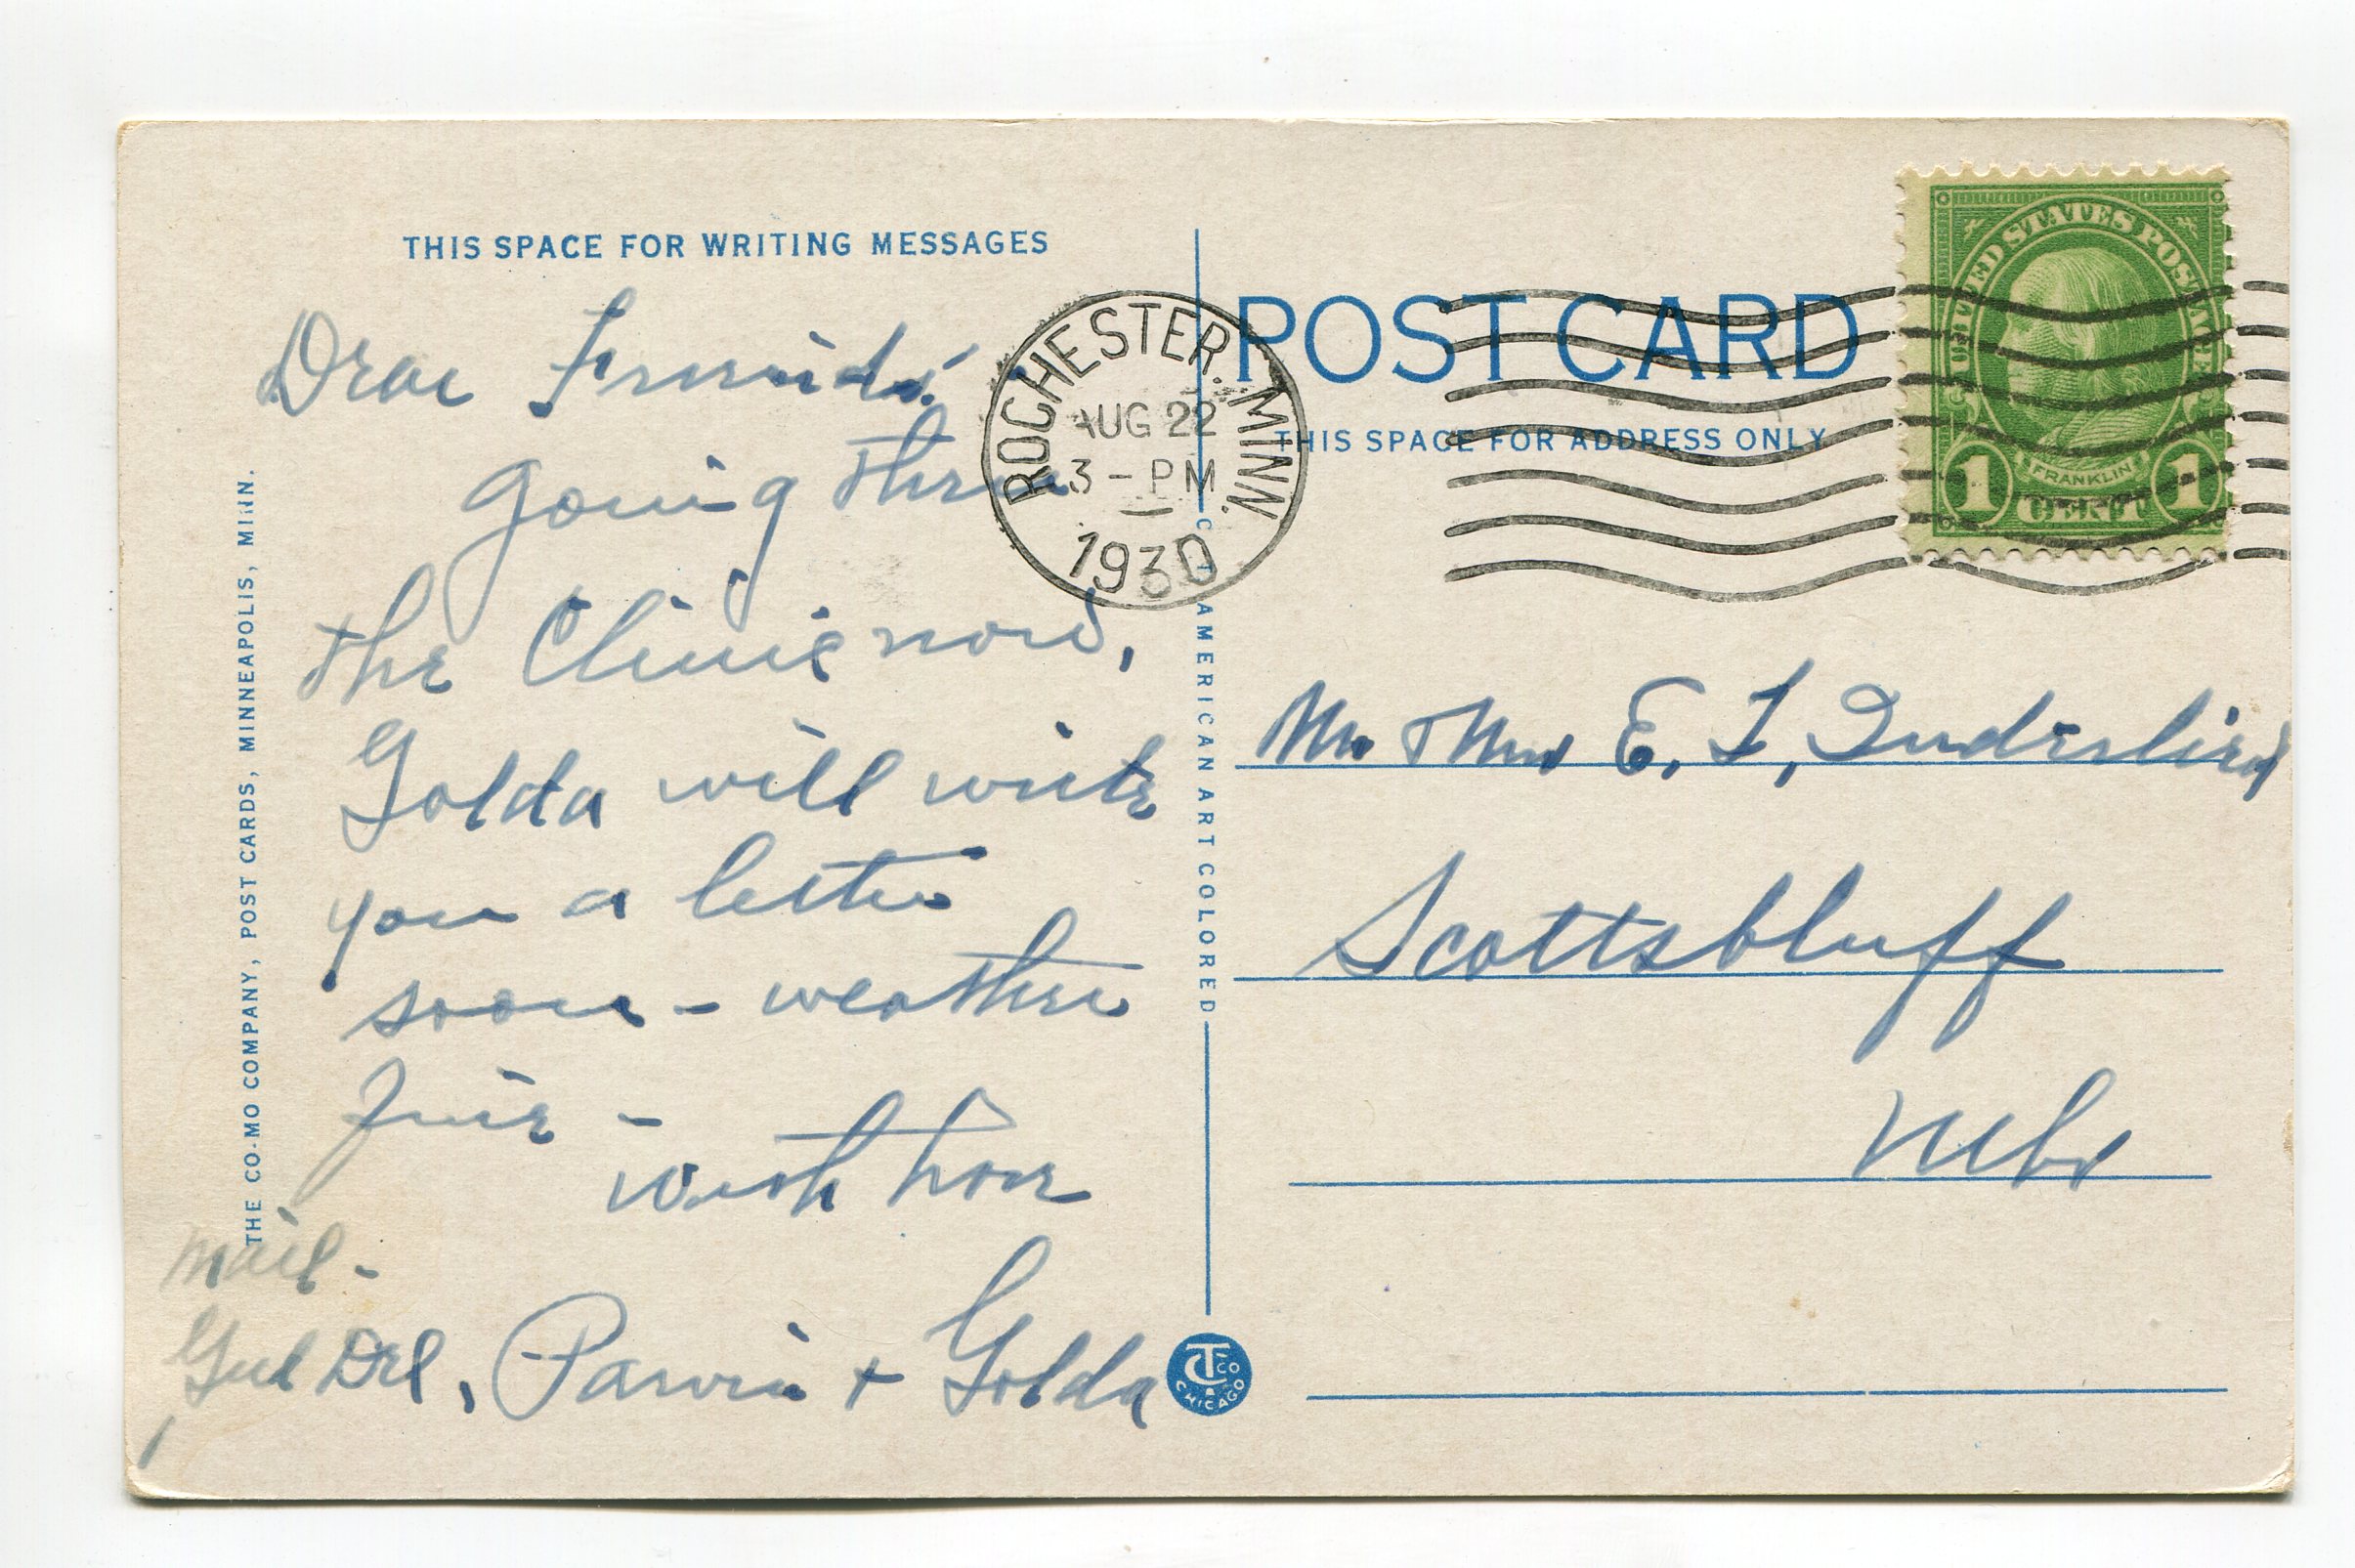 THIS SPACE FOR WRITING MESSAGES
Dear Friends:
Going thru
the Clinic now,
Golda will write
you a letter
soon - weather
fine -
with
mail -
Gen Del, & Golda
THE CO-MO COMPANY, POST CARDS, MINNEAPOLIS, MINN.
ROCHESTER, MINN.
AUG 22
3 - PM
1930
C. T. AMERICAN ART COLORED
CHICAGO
POST CARD
THIS SPACE FOR ADDRESS ONLY
UNITED STATES POSTAGE
FRANKLIN
1 CENT 1
Mr & Mrs E. F.
Scottsbluff
Nebr